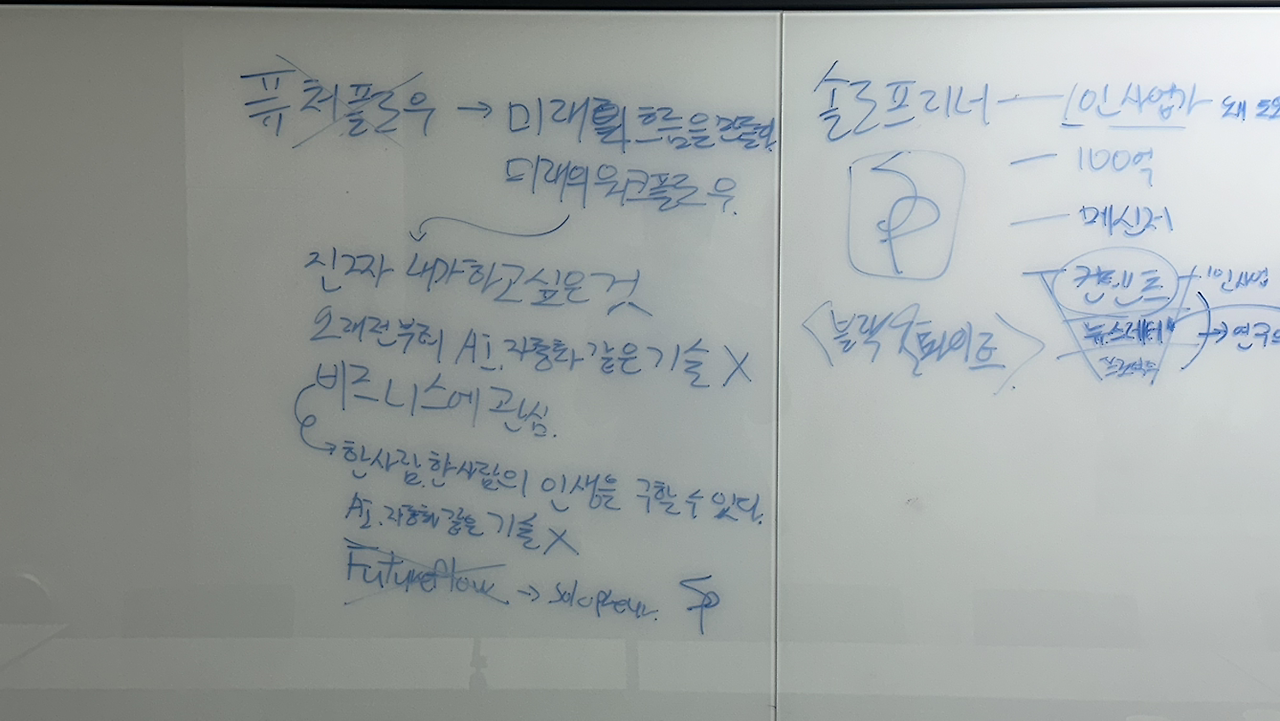 퓨처플로우 → 미래의 흐름을 만들다.
미래의 워크플로우.
진짜 내가 하고 싶은 것
오래전부터 AI. 자동화 같은 기술 X
비즈니스에 관심.
→ 한사람, 한사람의 인생을 구할 수 있다.
AI. 자동화 같은 기술 X
Futureflow → solopreneur. SP
솔로프리너 — 1인 사업가
— 100억
— 메신저
SP
컨텐츠 1인사업
뉴스레터 → 연구
<블랙&화이트>